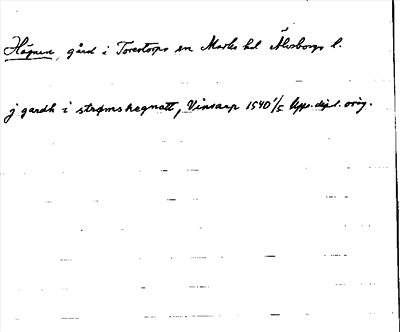 Hägnen, gård i Torestorps sn Marks hd Älvsborgs l.
j gardh i strøms hegnatt, Vinsarp 1540 1/5 Upps. dipl. orig.